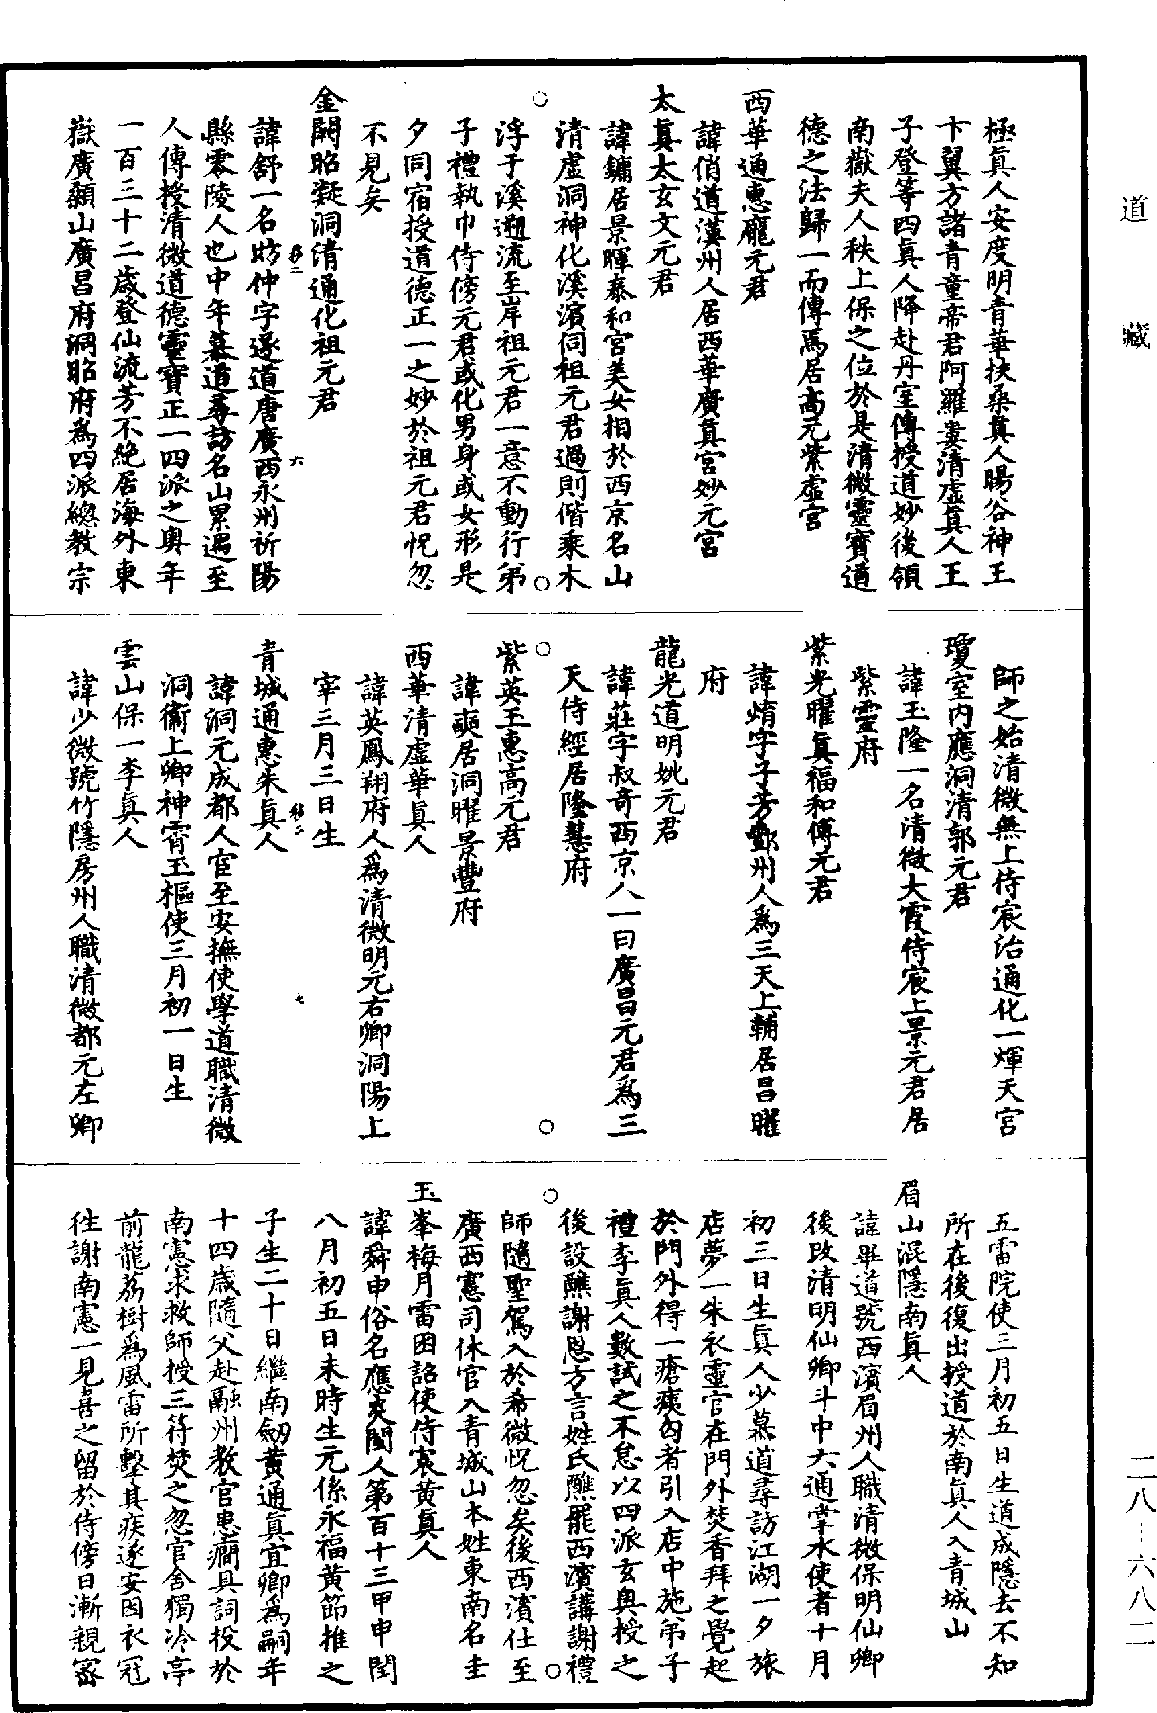 道藏
極眞人安度明青華扶桑眞人暘谷神王
卞翼方諸青童帝君阿羅婁清虛眞人王
子登等四眞人降赴丹室傳授道妙後領
南嶽夫人秩上保之位於是清微靈寶道
德之法歸一而傳焉居高元紫虛宮
西華通惠龐元君
諱俏道漢州人居西華廣眞宮妙元宮
太眞太玄文元君
諱鏞居景暉泰和宮美女相於西京名山
清虛洞神化溪濱伺祖元君過則偕乘木
浮于溪遡流至岸祖元君一意不動行弟
子禮執巾侍傍元君或化男身或女形是
夕同宿授道德正一之妙於祖元君怳忽
不見矣
金闕昭凝洞清通化祖元君
諱舒一名昉仲字遂道唐廣西永州祈陽
縣零陵人也中年慕道尋訪名山累遇至
人傳授清微道德靈寶正一四派之奧年
一百三十二歲登仙流芳不絕居海外東
嶽廣顙山廣昌府洞昭府爲四派總教宗
師之始清微無上侍宸治通化一煇天宮
瓊室內應洞清郭元君
諱玉隆一名清微大霞侍宸上景元君居
紫靈府
紫光曜眞福和傅元君
諱焴字子芳鄞州人爲三天上輔居昌曜
府
龍光道明姚元君
諱莊字叔奇西京人一曰廣昌元君爲三
天侍經居隆慧府
紫英玉惠高元君
諱奭居洞曜景豐府
西華清虛華眞人
諱英鳳翔府人爲清微明元右卿洞陽上
宰三月三日生
青城通惠朱眞人
諱洞元成都人官至安撫使學道職清微
洞微上卿神霄玉樞使三月初一日生
雲山保一李眞人
諱少微號竹隱房州人職清微都元左卿
五雷院使三月初五日生道成隱去不知
所在後復出授道於南眞人入青城山
眉山混隱南眞人
諱畢道號西濱眉州人職清微保明仙卿
後改清明仙卿斗中六通掌水使者十月
初三日生眞人少慕道尋訪江湖一夕旅
店夢一朱衣靈官在門外焚香拜之覺起
於門外得一瘡痍丐者引入店中施弟子
禮李眞人數試之不怠以四派玄奥授之
後設醮謝恩方言姓氏醮罷西濱講謝禮
師隨聖駕入於希微怳忽矣後西濱仕至
廣西憲司休官入青城山本姓東南名圭
玉峯梅月雷困詔使侍宸黄眞人
諱舜申俗名應炎閩人第百十三甲申閏
八月初五日未時生元係永福黄節推之
子生二十日繼南劒黄通眞宜卿爲嗣年
十四歲隨父赴融州教官患癎具詞投於
南憲求救師授三符焚之忽官舍獨冷亭
前龍荔樹爲風雷所擊其疾遂安因衣冠
徃謝南憲一見喜之留於侍傍日漸親密
二八—六八二
六
七